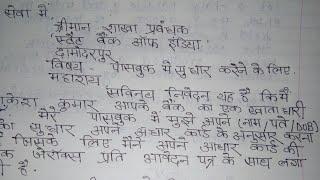 सेवा में,
श्रीमान शाखा प्रबंधक
स्टेट बैंक ऑफ इंडिया
दामोदरपुर
विषय पासबुक में सुधार करने के लिए.
महाशय
सविनय निवेदन यह है कि मैं
राकेश कुमार आपके बैंक का एक खाताधारी
मेरे पासबुक में मुझे अपने (नाम/पता/DOB)
का सुधार अपने आधार कार्ड के अनुसार करना
जिसके लिए मैंने अपने आधार कार्ड की
जेरॉक्स प्रति आवेदन पत्र के साथ लगा
है.